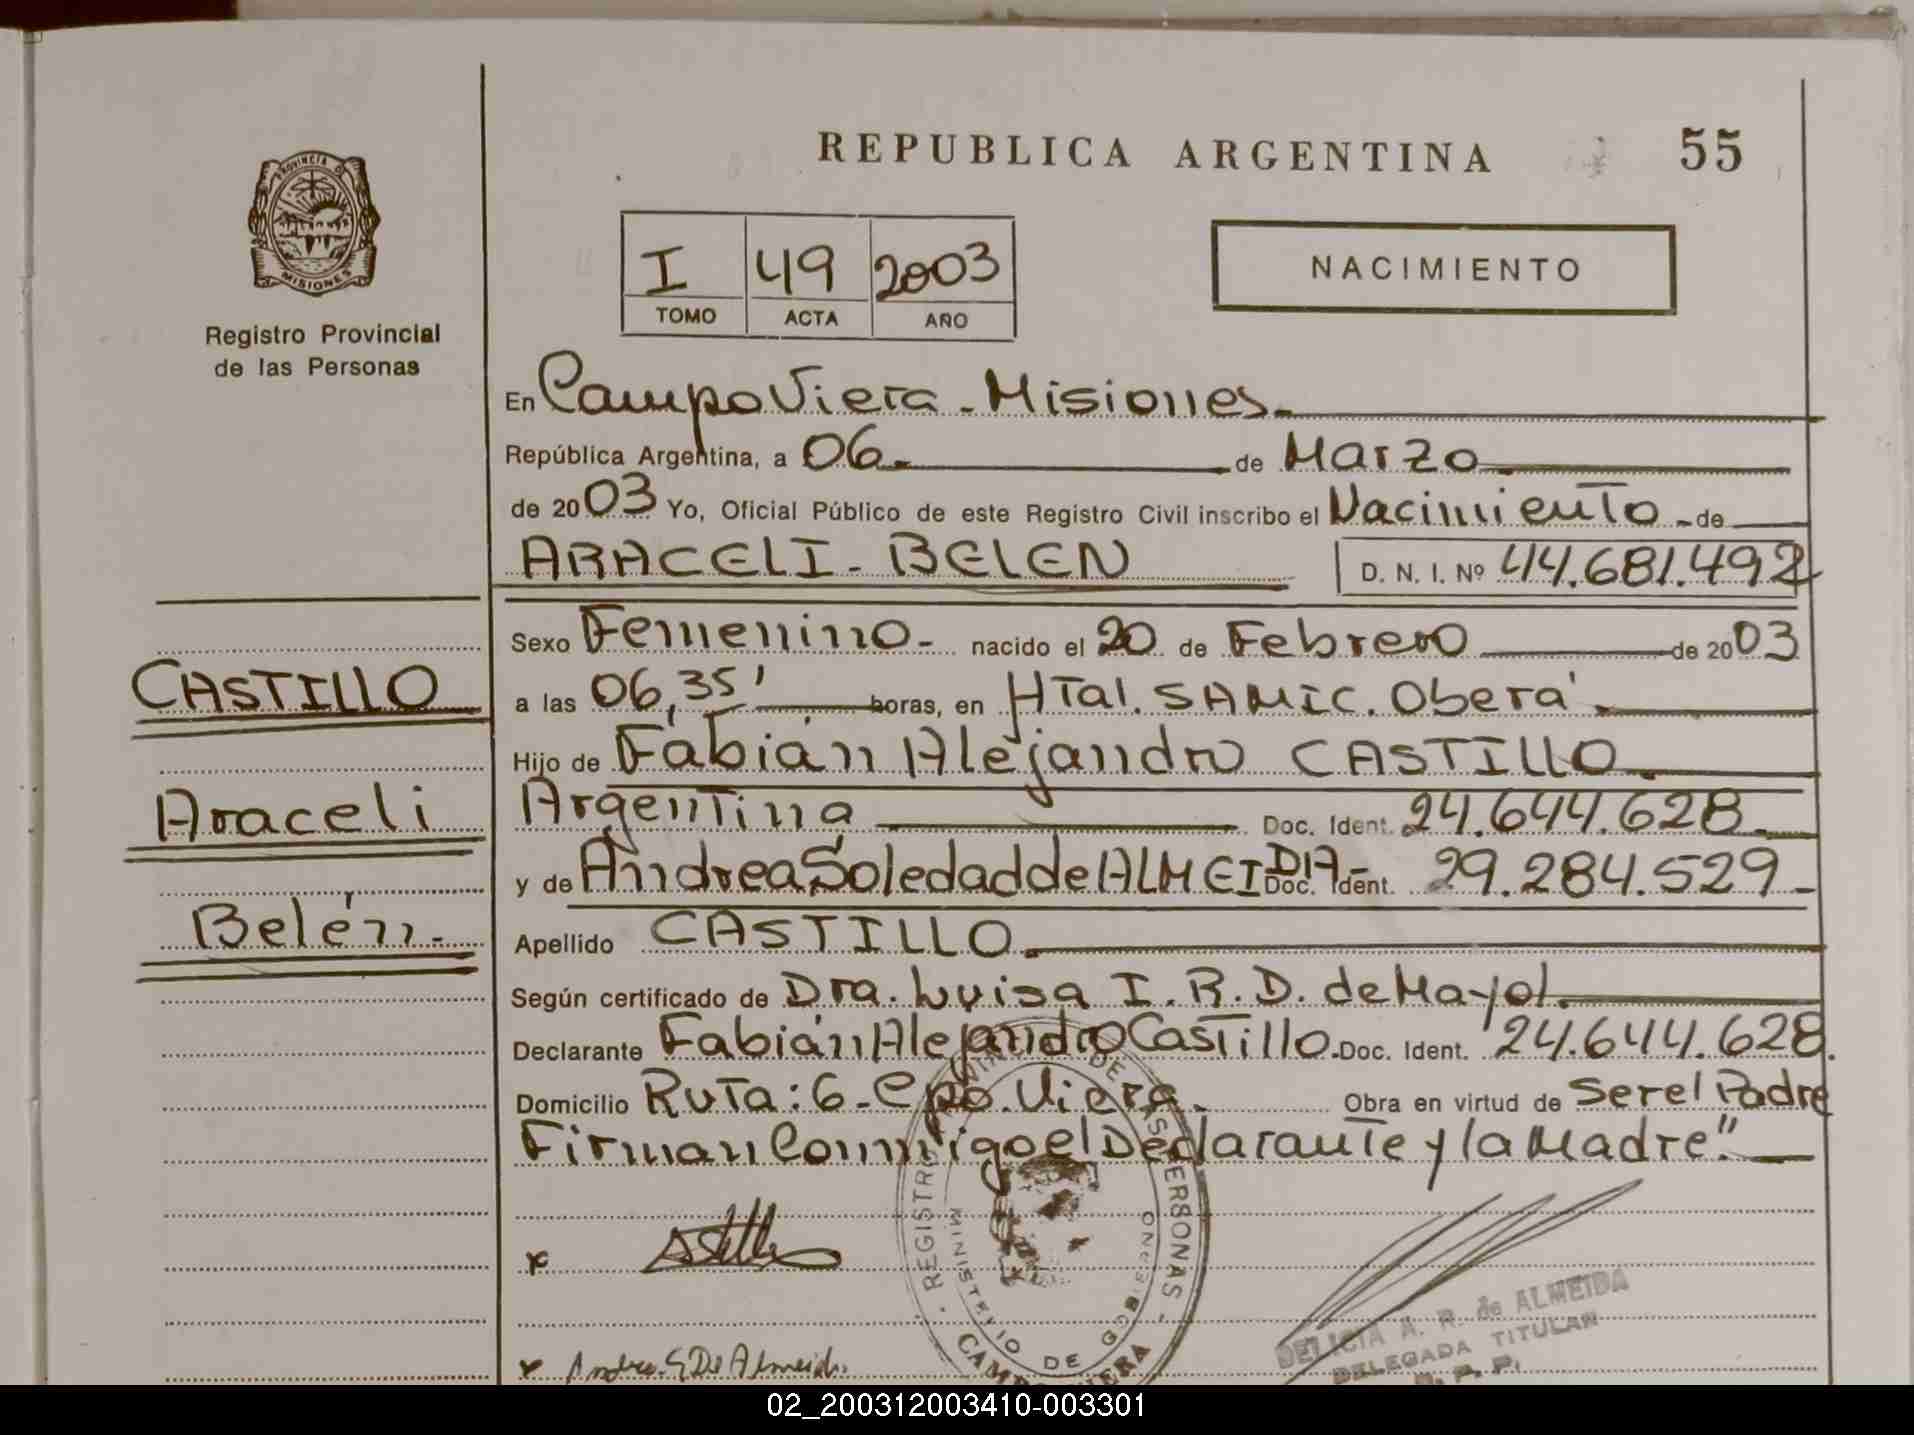 REPUBLICA ARGENTINA
55
PROVINCIA DE
MISIONES
Registro Provincial
de las Personas
I
49
2003
TOMO
ACTA
AÑO
NACIMIENTO
En Campo Viera - Misiones.
República Argentina, a 06. de Marzo
de 2003 Yo, Oficial Público de este Registro Civil inscribo el Nacimiento - de
ARACELI - BELEN
D. N. I. Nº 44.681.492
CASTILLO
Araceli
Belén.
Sexo Femenino - nacido el 20 de Febrero de 2003
a las 06,35' horas, en HTal. SAMIC. Oberá.
Hijo de Fabián Alejandro CASTILLO.
Argentina Doc. Ident. 24.644.628.
y de Andrea Soledad de ALMEIDA - Doc. Ident. 29.284.529 -
Apellido CASTILLO.
Según certificado de Dra. Luisa I. R. D. de Mayol.
Declarante Fabián Alejandro Castillo. Doc. Ident. 24.644.628.
Domicilio Ruta: 6 - Cpo. Viera. Obra en virtud de Ser el Padre
Firman Conmigo el Declarante y la Madre".
x
x Andrea S De Almeida
REGISTRO PROVINCIAL DE LAS PERSONAS
MINISTERIO DE GOBIERNO
CAMPO VIERA
DELICIA A. R. de ALMEIDA
DELEGADA TITULAR
R. P. P.
02_200312003410-003301